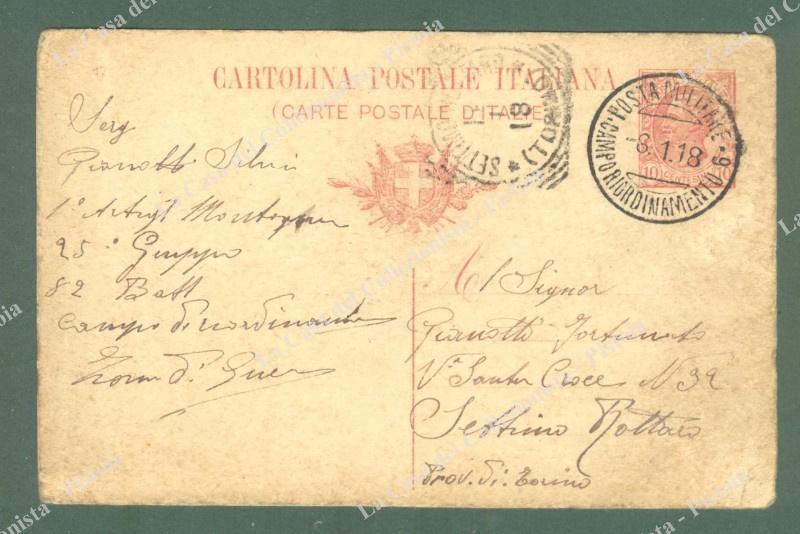 CARTOLINA POSTALE ITALIANA
(CARTE POSTALE D'ITALIE)
POSTA MILITARE
8.1.18
CAMPO RIORDINAMENTO 6
SETTIMO
1 18
(TORINO)
10 CENTESIMI 10
Serg
Gianotti Silvio
1° Artigl Montagna
25° Gruppo
82 Batt
Campo di riordinamento
Zona di Guerra
Al Signor
Gianotti Fortunato
Vª Santa Croce N 39
Settimo Rottaro
Prov. di Torino
La Casa del Collezionista - Pistoia